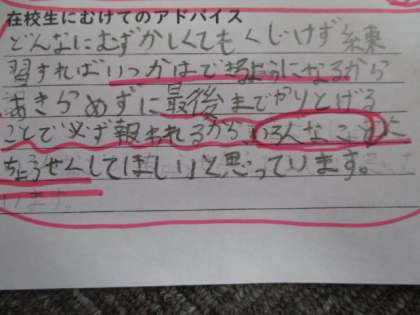 在校生にむけてのアドバイス
どんなにむずかしくてもくじけず練
習すればいつかはできるようになるから
あきらめずに最後までやりとげる
ことで必ず報われるから、いろんなことに
ちょうせんしてほしいと思っています。